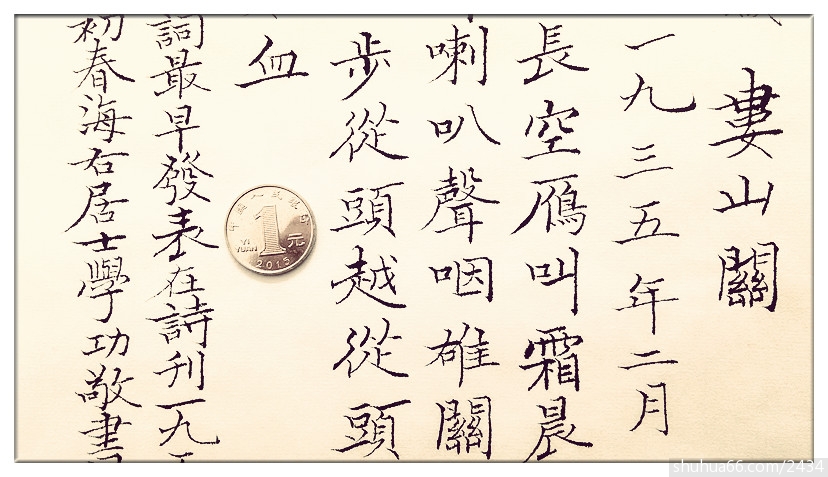 婁山關
一九三五年二月
長空雁叫霜晨
喇叭聲咽雄關
步從頭越從頭
血
詞最早發表在詩刊一九五
初春海右居士學功敬書
中國人民銀行
1元
YI YUAN
2015
shuhua66.com/2434